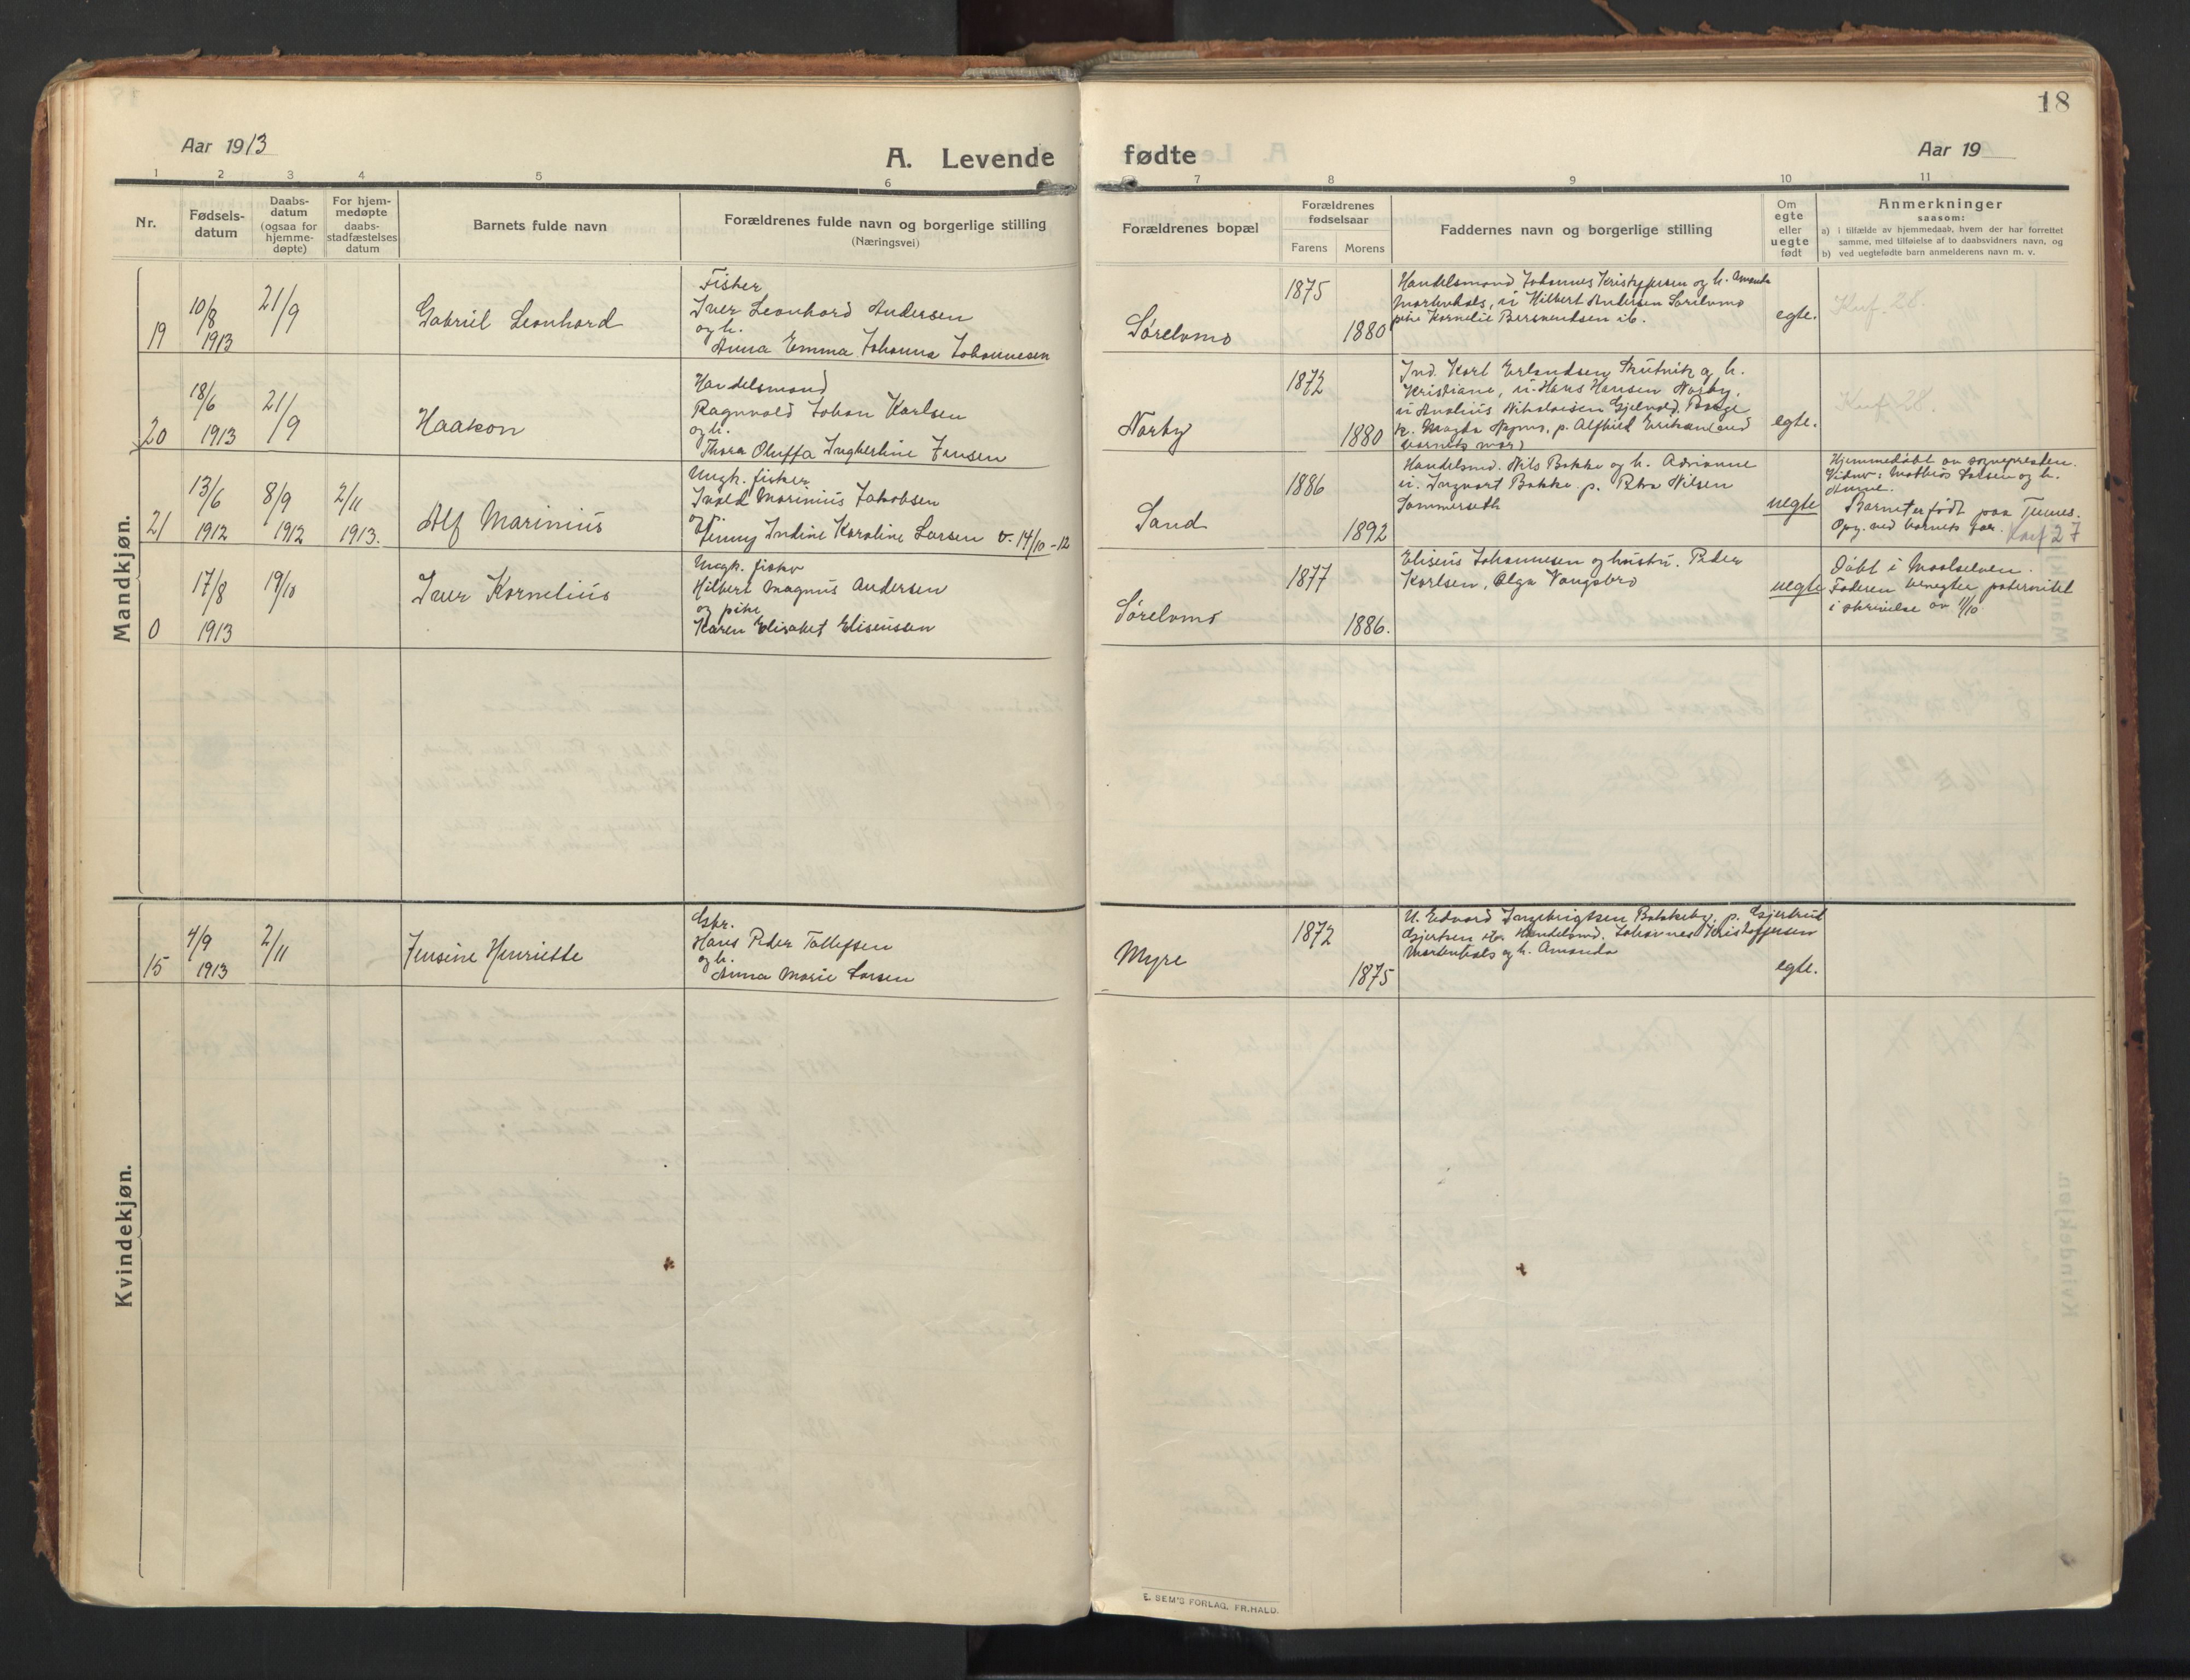 18
Aar 1913
A. Levende fødte
Aar 19
1 2 3 4 5 6 7 8 9 10 11
Nr.
Fødsels-
datum
Daabs-
datum
(ogsaa for
hjemme-
døpte)
For hjem-
medøpte
daabs-
stadfæstelses
datum
Barnets fulde navn
Forældrenes fulde navn og borgerlige stilling
(Næringsvei)
Forældrenes bopæl
Forældrenes
fødselsaar
Farens Morens
Faddernes navn og borgerlige stilling
Om
egte
eller
uegte
født
Anmerkninger
saasom:
a) i tilfælde av hjemmedaab, hvem der har forrettet
samme, med tilføielse af to daabsvidners navn, og
b) ved uegtefødte barn anmelderens navn m. v.
Mandkjøn.
19
10/8
1913
21/9
Gabriel Leonhard
Fisker
Iver Leonhard Andersen
og h.
Anna Emma Johanna Johannesen
Sørelvmo
1875
1880
Handelsmand Johannes Kristoffersen og h. Amanda
Mortenhals, u. Hilbert Andersen Sørelvmo
pike Kornelie Berentsen ib.
egte.
Konf. 28.
20
18/6
1913
21/9
Haakon
Handelsmand
Ragnvald Johan Karlsen
og h.
Thora Oluffa Ingberline Jensen
Norby
1872
1880
Ind. Karl Erlandsen Trutvik og h.
Kristiane, u. Hans Hansen Norby,
u. Analius Nikolaisen Gjelvold,
k. Magda p. Alfhild
barnets mor)
egte.
Konf. 28.
21
13/6
1912
8/9
1912
2/11
1913.
Alf Marinius
Ungk. fisker
Marinius Jakobsen
og p.
Jenny Indine Karoline Larsen v. 14/10-12
Sand
1886
1892
Handelsmd. Nils Bakke og h. Adrianne
u. Ingvart Bakke p. Petra Nilsen
Sommerseth
uegte
Hjemmedøbt av sognepresten.
Vidner: Mathias Larsen og h.
Anne.
Barnet er født paa Tennes.
Opg. ved barnets far. Konf 27
0
17/8
1913
19/10
Iver Kornelius
Ungk. fisker
Hilbert Magnus Andersen
og pike
Karen Elisabet Eliseussen
Sørelvmo
1877
1886.
Eliseus Johannesen og hustru. Peder
Karlsen, Olga Vangsbro
uegte
Døbt i Maalselven.
Faderen benegter paternitet
i skrivelse av 11/10
Kvindekjøn.
15
4/9
1913
2/11
Jensine Henriette
Gbr.
Hans Peder Tollefsen
og h.
Anna Marie Larsen
Myre
1872
1875
U. Edvard Ingebrigtsen Bakkeby, p. Gjertrud
Gjertsen ib. Handelsmd. Johannes Kristoffersen
Mortenhals og h. Amanda
egte.
E. SEM'S FORLAG, FR.HALD.